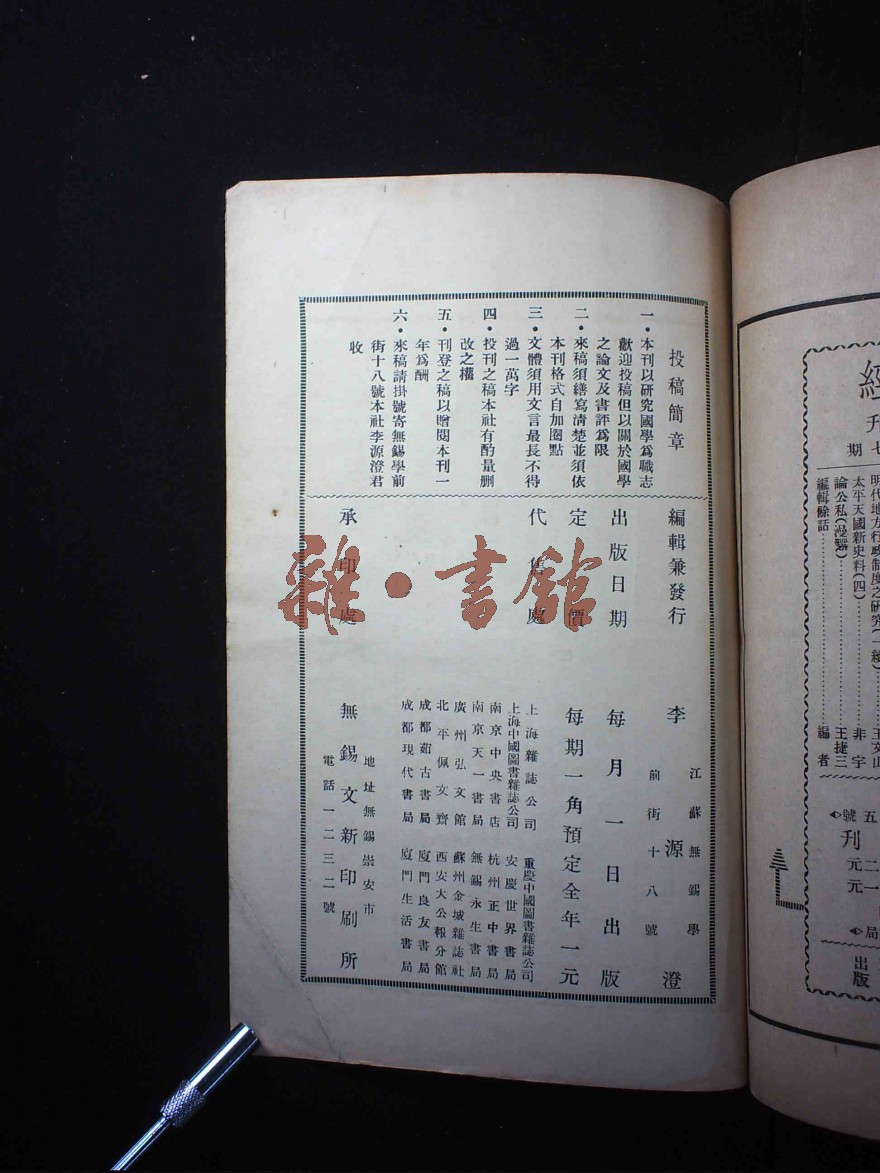 經
七期
明代地方行政制度之研究(一續)
王文山
太平天國新史料(四)
非宇
論公私
王捷三
編輯餘話
編者
五號
刊
二元
一元
局
出版
投稿簡章
一•本刊以研究國學爲職志
歡迎投稿但以關於國學
之論文及書評爲限
二•來稿須繕寫清楚並須依
本刊格式自加圈點
三•文體須用文言最長不得
過一萬字
四•投刊之稿本社有酌量删
改之權
五•刊登之稿以贈閱本刊一
年爲酬
六•來稿請掛號寄無錫學前
街十八號本社李源澄君
收
編輯兼發行
江蘇無錫學
李源澄
前街十八號
出版日期
每月一日出版
定價
每期一角預定全年一元
代售處
上海雜誌公司
重慶中國圖書雜誌公司
上海中國圖書雜誌公司
安慶世界書局
南京中央書店
杭州正中書局
南京天一書局
無錫永生書局
廣州弘文館
蘇州金城雜誌社
北平佩文齋
西安大公報分館
成都茹古書局
廈門良友書局
成都現代書局
廈門生活書局
承印處
地址無錫崇安市
無錫文新印刷所
電話一二三二號
雜•書館